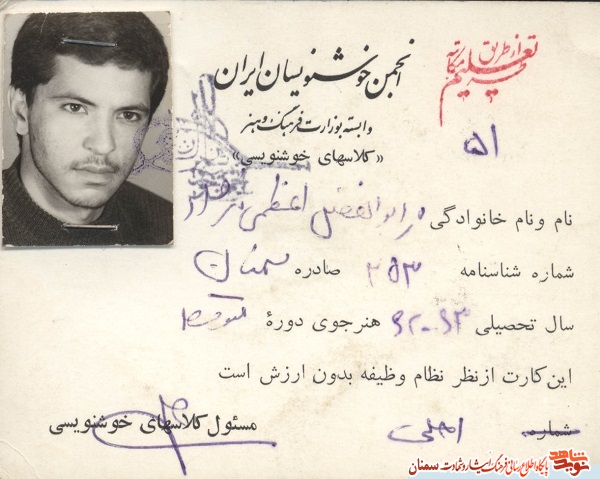 از طریق مکاتبه
تعلیم
انجمن خوشنویسان ایران
وابسته بوزارت فرهنگ و هنر
«کلاسهای خوشنویسی»
۵۱
نام و نام خانوادگی ابوالفضل اعظمی
شماره شناسنامه ۲۵۳ صادره سمنان
سال تحصیلی ۶۳-۶۲ هنرجوی دورهٔ متوسط
این کارت از نظر نظام وظیفه بدون ارزش است
شماره مسئول کلاسهای خوشنویسی
نوید شاهد
پایگاه اطلاع رسانی فرهنگ ایثار و شهادت سمنان